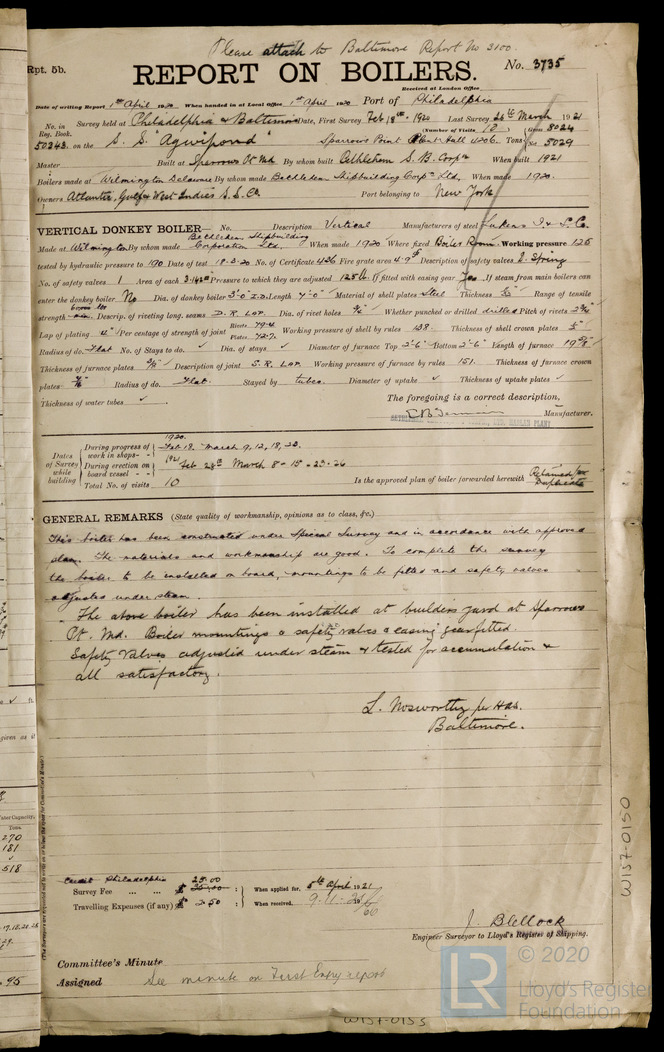 Please attach to Baltimore Report No 3100.
Rpt. 5b.
REPORT ON BOILERS.
No. 3735
Received at London Office
Date of writing Report 1st April 1920 When handed in at Local Office 1st April 1920 Port of Philadelphia
No. in Reg. Book. Survey held at Philadelphia & Baltimore Date, First Survey Feb 18th 1920 Last Survey 26th March 1921
(Number of Visits 10)
50243 on the S. S. "Agwipond" Sparrows Point Hull 4206. Tons Gross 5024 Net 5029
Master Built at Sparrows Pt Md. By whom built Bethlehem S. B. Corpn When built 1921
Boilers made at Wilmington Delaware By whom made Bethlehem Shipbuilding Corpn Ltd. When made 1920.
Owners Atlantic, Gulf & West Indies S.S. Co. Port belonging to New York
VERTICAL DONKEY BOILER— No. Description Vertical Manufacturers of steel Lukens I. & S. Co.
Made at Wilmington By whom made Bethlehem Shipbuilding Corporation Ltd. When made 1920 Where fixed Boiler Room Working pressure 125
tested by hydraulic pressure to 190 Date of test 18-3-20 No. of Certificate 426 Fire grate area Description of safety valves 2. Spring
No. of safety valves 1 Area of each Pressure to which they are adjusted 125 lb. If fitted with casing gear Yes If steam from main boilers can
enter the donkey boiler No Dia. of donkey boiler 3'-0" I.D. Length 7'-0" Material of shell plates Steel Thickness Range of tensile
strength Descrip. of riveting long. seams D.R. Lap. Dia. of rivet holes Whether punched or drilled drilled Pitch of rivets
Lap of plating 4" Per centage of strength of joint Rivets 79.4 Plates 72.7. Working pressure of shell by rules 138. Thickness of shell crown plates
Radius of do. Flat No. of Stays to do. ✓ Dia. of stays ✓ Diameter of furnace Top 2'-6" Bottom 2'-6" Length of furnace
Thickness of furnace plates Description of joint S.R. Lap. Working pressure of furnace by rules 151. Thickness of furnace crown
plates Radius of do. Flat. Stayed by tubes. Diameter of uptake ✓ Thickness of uptake plates ✓
Thickness of water tubes ✓
The foregoing is a correct description,
Manufacturer.
Dates of Survey while building
During progress of work in shops - - 1920. Feb 18. March 9, 12, 18, 23.
During erection on board vessel - - - 1921 Feb 28th March 8-15-23-26
Total No. of visits 10
Is the approved plan of boiler forwarded herewith Retained for Duplicate
GENERAL REMARKS (State quality of workmanship, opinions as to class, &c.)
This boiler has been constructed under Special Survey and in accordance with approved
plan. The materials and workmanship are good. To complete the survey
the boiler to be installed on board, mountings to be fitted and safety valves
adjusted under steam.
The above boiler has been installed at builders yard at Sparrows
Pt. Md. Boiler mountings & safety valves & casing gear fitted.
Safety Valves adjusted under steam & tested for accumulation &
all satisfactory.
L. Nosworthy per Has.
Baltimore.
Credit Philadelphia 25.00
Survey Fee ... ... $ 35.00 : When applied for, 5th April 1921
Travelling Expenses (if any) $ 2.50 : When received,
J. Blellock
Engineer Surveyor to Lloyd's Register of Shipping.
Committee's Minute
Assigned See minute on First Entry report
W157-0150
W157-0153
© 2020
LR
Lloyd's Register
Foundation